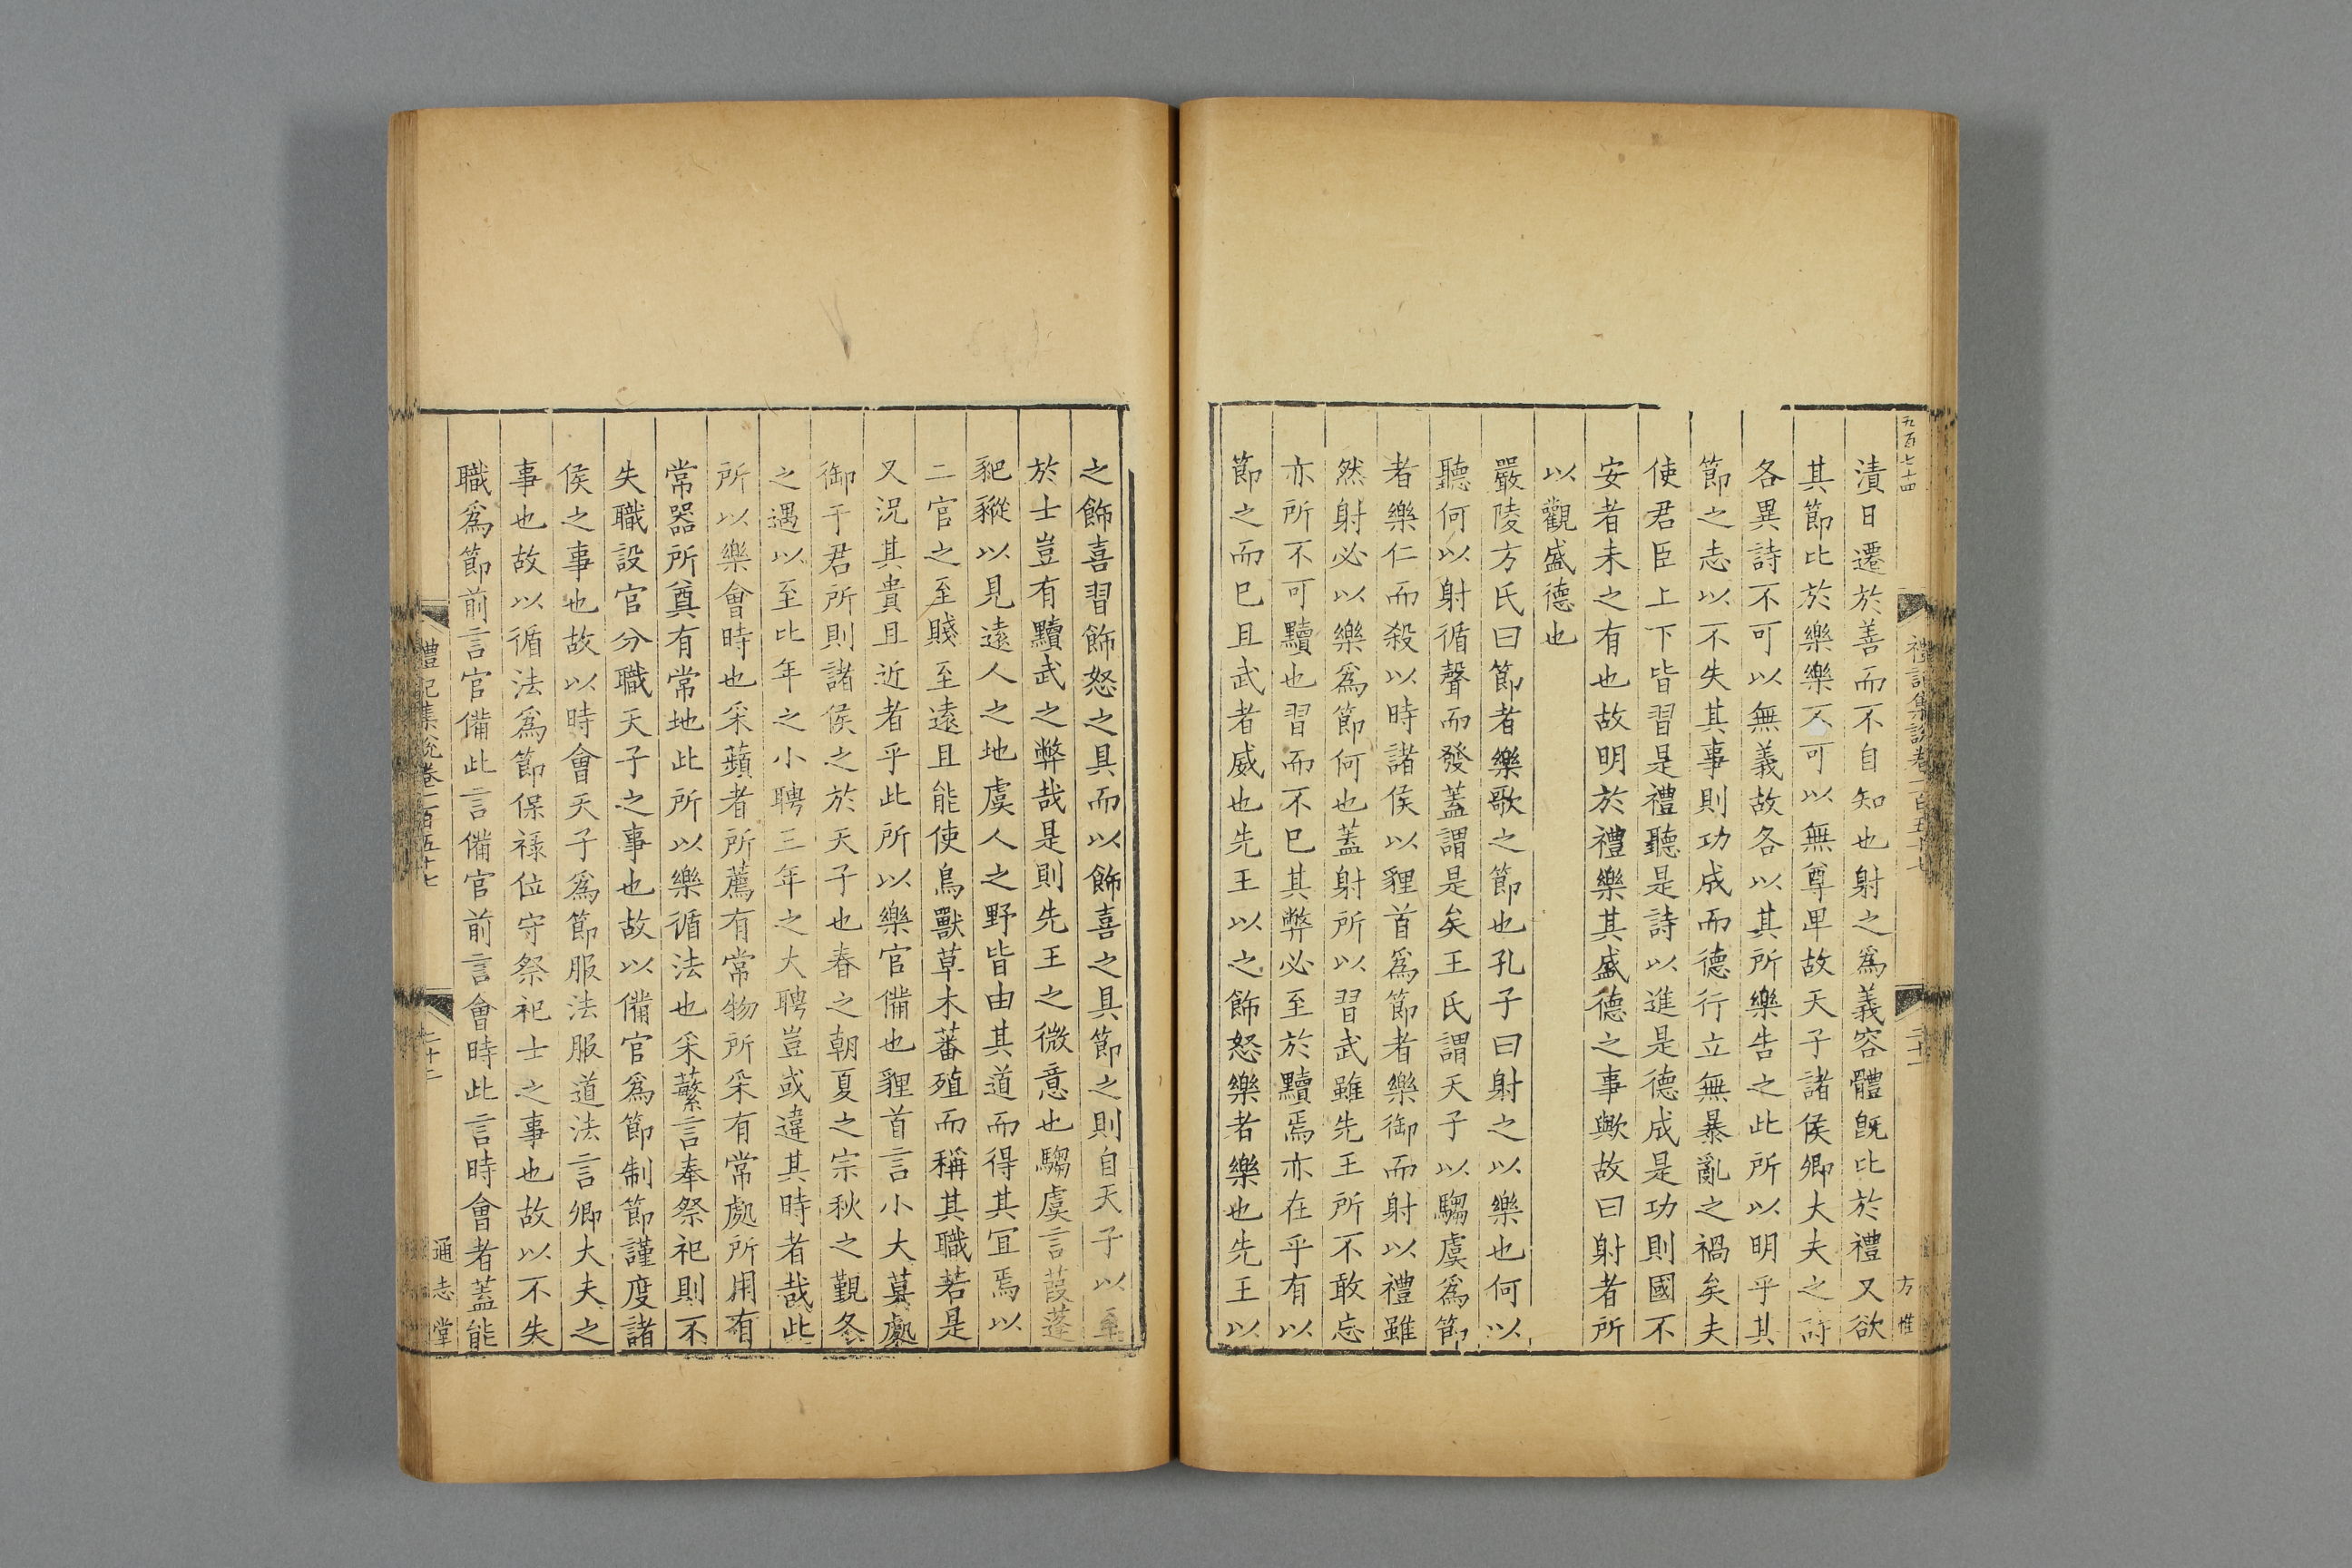 九百七十四
漬日遷於善而不自知也射之為義容體旣比於禮又欲
其節比於樂樂不可以無尊卑故天子諸侯卿大夫之詩
各異詩不可以無義故各以其所樂告之此所以明乎其
節之志以不失其事則功成而德行立無暴亂之禍矣夫
使君臣上下皆習是禮聽是詩以進是德成是功則國不
安者未之有也故明於禮樂其盛德之事歟故曰射者所
以觀盛德也
嚴陵方氏曰節者樂歌之節也孔子曰射之以樂也何以
聽何以射循聲而發蓋謂是矣王氏謂天子以騶虞爲節
者樂仁而殺以時諸侯以貍首爲節者樂御而射以禮雖
然射必以樂爲節何也蓋射所以習武雖先王所不敢忘
亦所不可黷也習而不巳其弊必至於黷焉亦在乎有以
節之而巳且武者威也先王以之飾怒樂者樂也先王以
禮記集說卷一百五十七
二十一
方惟
之飾喜習飾怒之具而以飾喜之具節之則自天子以至
於士豈有黷武之弊哉是則先王之微意也騶虞言葭蓬
豝豵以見遠人之地虞人之野皆由其道而得其冝焉以
二官之至賤至遠且能使鳥獸草木蕃殖而稱其職若是
又況其貴且近者乎此所以樂官備也貍首言小大莫處
御于君所則諸侯之於天子也春之朝夏之宗秋之覲冬
之遇以至比年之小聘三年之大聘豈或違其時者哉此
所以樂會時也采蘋者所薦有常物所采有常處所用有
常器所奠有常地此所以樂循法也采蘩言奉祭祀則不
失職設官分職天子之事也故以備官爲節制節謹度諸
侯之事也故以時會天子爲節服法服道法言卿大夫之
事也故以循法爲節保祿位守祭祀士之事也故以不失
職爲節前言官備此言備官前言會時此言時會者蓋能
禮記集說卷一百五十七
二十二
通志堂